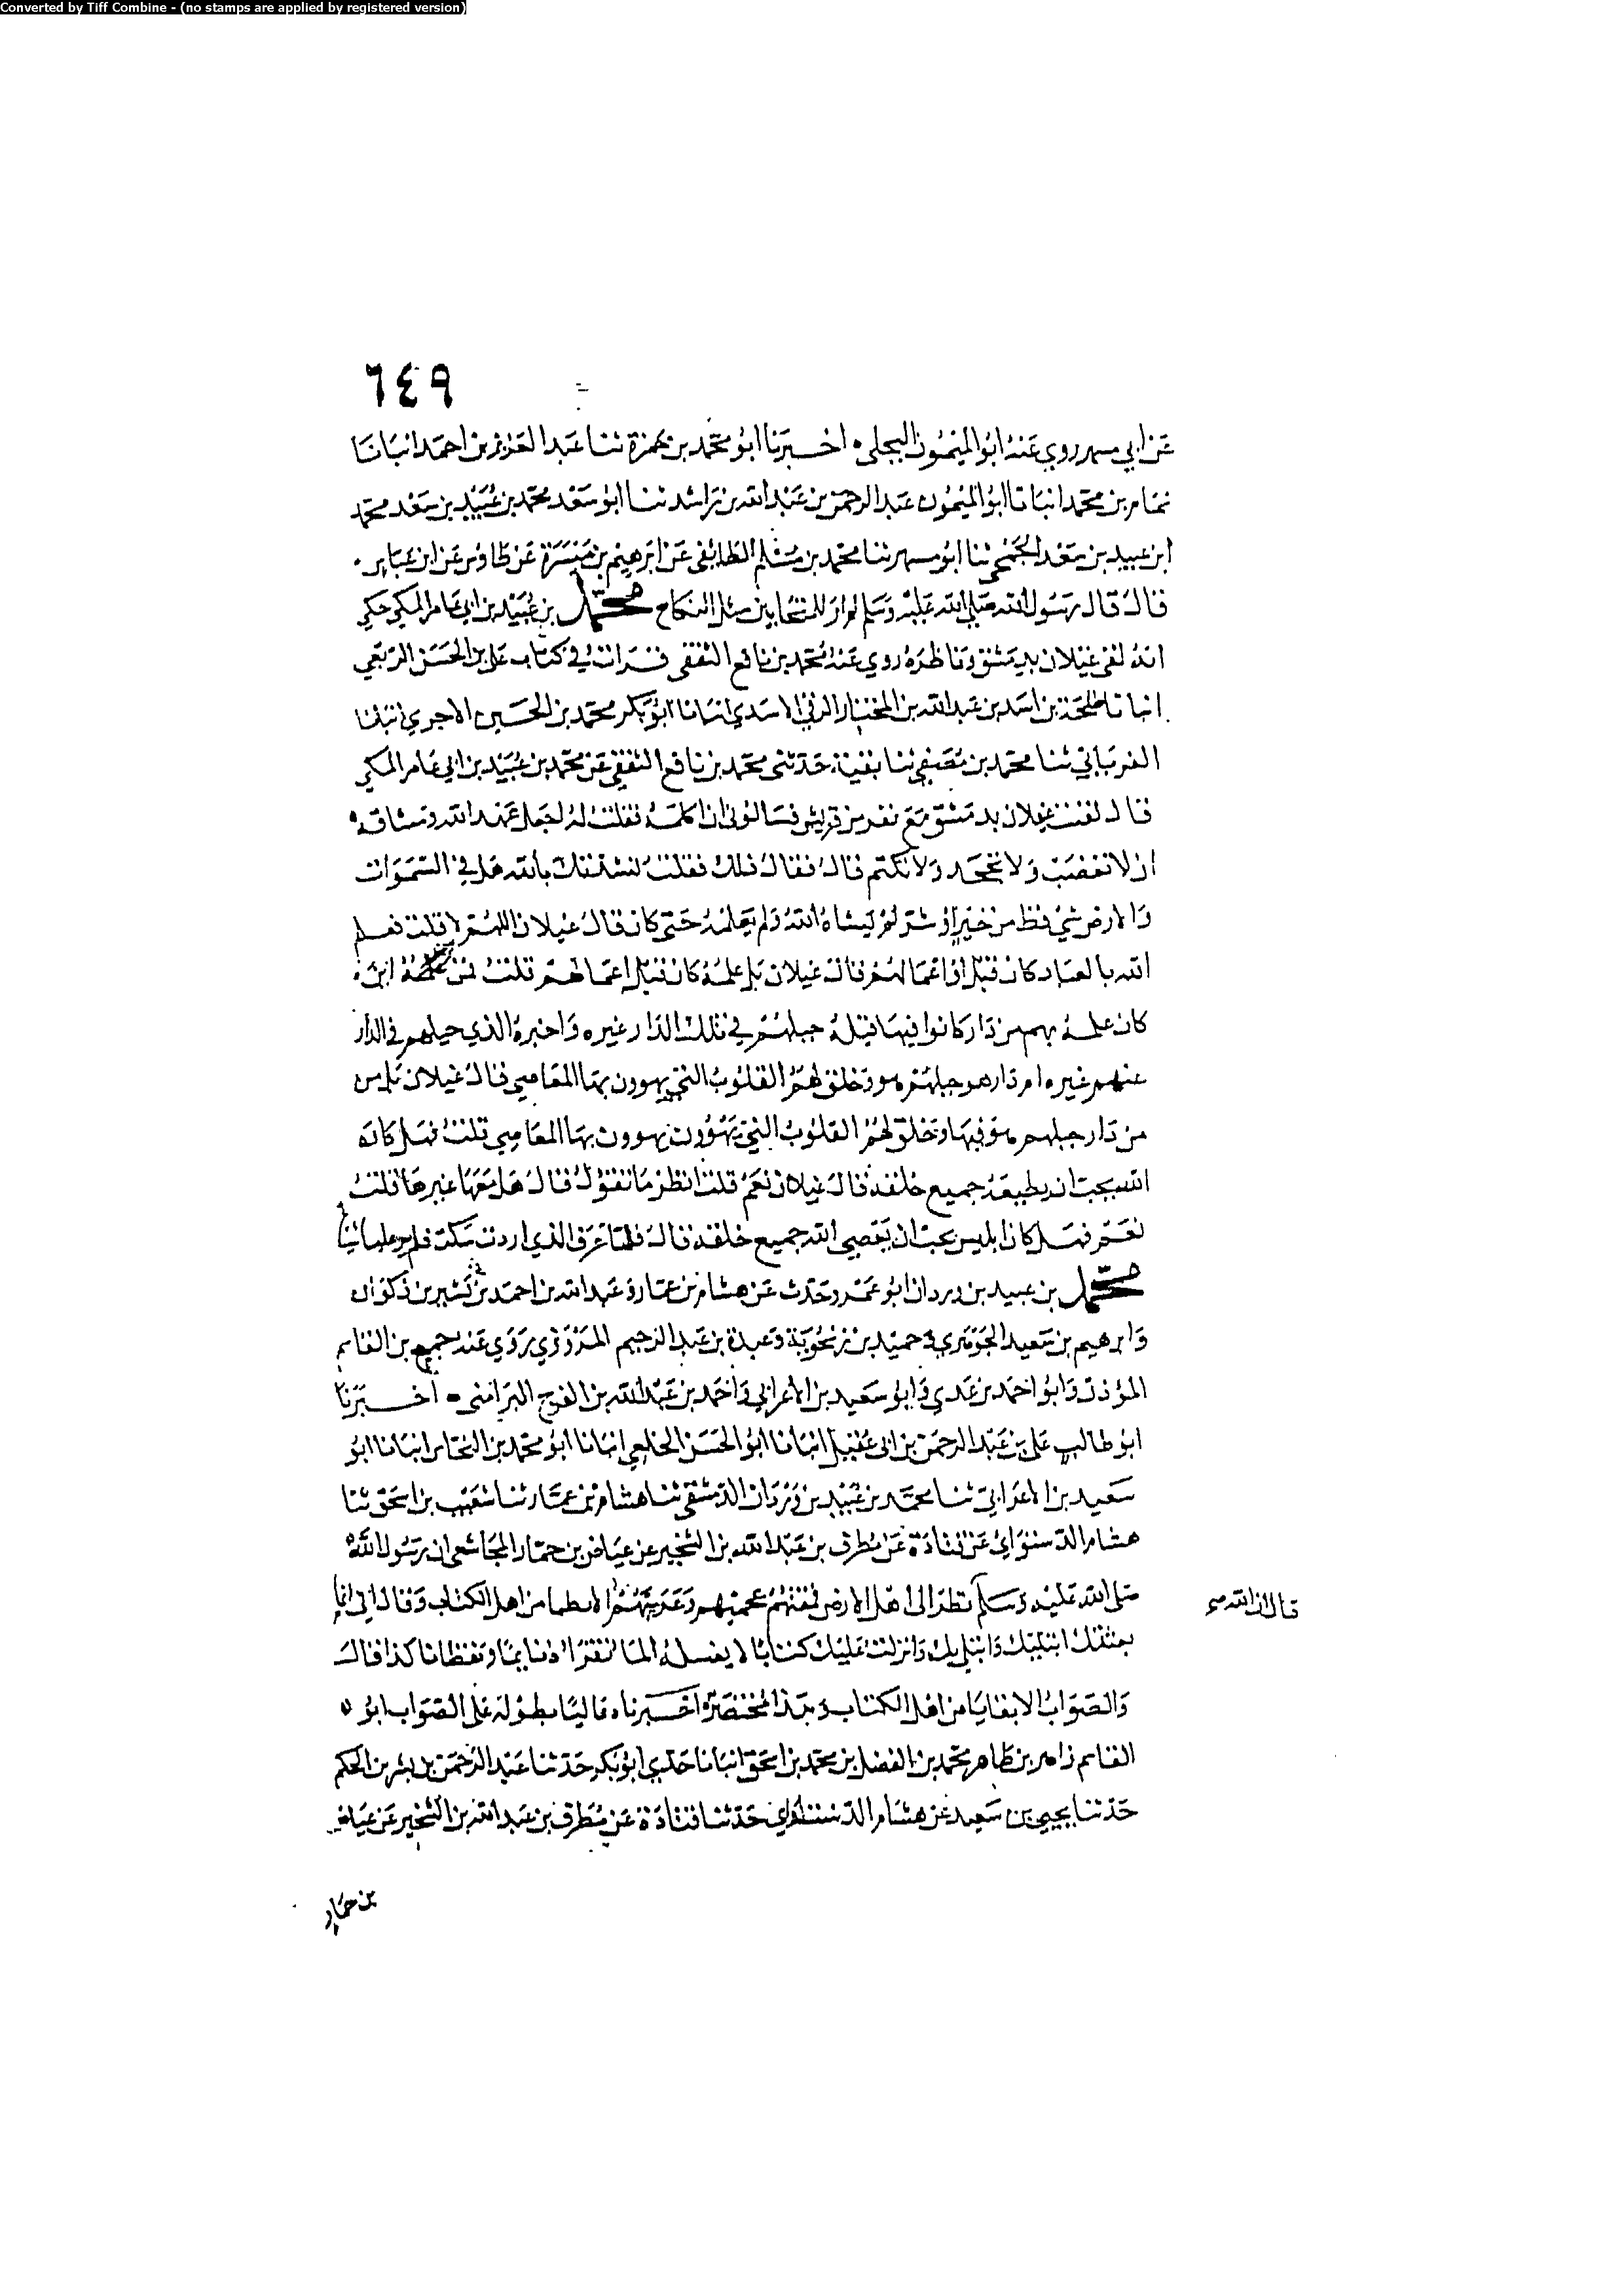 Converted by Tiff Combine - (no stamps are applied by registered version)
٦٤٩
عن ابي مسهر روي عنه ابو الميمون البجلي اخبرنا ابو محمد بن حمزة ثنا عبد العزيز بن احمد انبانا
تمام بن محمد انبانا ابو الميمون عبد الرحمن بن عبد الله بن راشد ثنا ابو سعد محمد بن عبيد بن سعد محمد
ابن عبيد بن سعد الجمحي ثنا ابو مسهر ثنا محمد بن مسلم الطائفي عن ابرهيم بن ميسرة عن طاوس عن ابن عباس
قال قال رسول الله صلى الله عليه وسلم لم ار للمتحابين مثل النكاح محمد بن عبيد بن ابي عامر المكي حكي
انه لقي غيلان بدمشق وناظره روي عنه محمد بن نافع الثقفي قرات في كتاب علي بن الحسن الربعي
انبانا طلحة بن اسد بن عبد الله بن المختار الرقي الاسدي انبانا ابو بكر محمد بن الحسين الاجري انبانا
الفريابي ثنا محمد بن مصفي ثنا بقية حدثني محمد بن نافع الثقفي عن محمد بن عبيد بن ابي عامر المكي
قال لقيت غيلان بدمشق مع نفر من قريش فسالوني ان اكلمه فقلت له اجعل عهد الله وميثاقه
ان لا تغضب ولا تجحد ولا تكتم قال فقال ذلك فقلت نشدتك بالله هل في السموات
والارض شي قط من خير او شر لم يشاه الله ولم يعلمه حتى كان قال غيلان اللهم لا قلت فعلم
الله بالعباد كان قبل او اعمالهم قال غيلان بل علمه كان قبل اعمالهم قلت فمن
كان علمه بهم من دار كانوا فيها قبله جبلهم في تلك الدار غيره واخبره الذي جبلهم في الدار
عنهم غيره ام دار هو جبلهم هو وخلق لهم القلوب التي يهوون بها المعاصي قال غيلان بل من
من دار جبلهم هو فيها وخلق لهم القلوب التي يهوون يهوون بها المعاصي قلت فهل كان
الله يحب ان يطيعه جميع خلقه قال غيلان نعم قلت انظر ما تقول قال هل معها غيرها قلت
نعم فهل كان ابليس يحب ان يعصي الله جميع خلقه قال فلما عرف الذي اردت سكت فلم يرد علي شيا
محمد بن عبيد بن وردان ابو عمرو حدث عن هشام بن عمار وعبد الله بن احمد بن بشير بن ذكوان
وابرهيم بن سعيد الجوهري وحميد بن زنجوية وعبدة بن عبد الرحيم المروزي روي عنه جميع بن القاسم
المؤذن وابو احمد بن عدي وابو سعيد بن الاعرابي واحمد بن عبد الله بن الفرج البرامي اخبرنا
ابو طالب علي بن عبد الرحمن بن ابي عقيل انبانا ابو الحسن الخلعي انبانا ابو محمد بن النحاس انبانا ابو
سعيد بن الاعرابي ثنا محمد بن عبيد بن وردان الدمشقي ثنا هشام بن عمار ثنا شعيب بن اسحق ثنا
هشام الدستوائي عن قتادة عن مطرف بن عبد الله بن الشخير عن عياض بن حمار المجاشعي ان رسول الله
صلى الله عليه وسلم نظر الى اهل الارض فمقتهم عجميهم وعربيهم الا بطما من اهل الكتاب وقال اني انما
قال ان الله
بعثتك ابتليك وابتلي بك وانزلت عليك كتابا لا يغسله الما تقراه نايما ويقظانا كذا قال
والصواب الا بقايا من اهل الكتاب وهذا مختصر اخبرناه عاليا بطوله على الصواب ابو
القاسم زاهر بن طاهر محمد بن الفضل بن محمد بن اسحق انبانا جدي ابو بكر حدثنا عبد الرحمن بن بشر بن الحكم
حدثنا يحيى بن سعيد عن هشام الدستوائي حدثنا قتادة عن مطرف بن عبد الله بن الشخير عن عياض
بن حمار